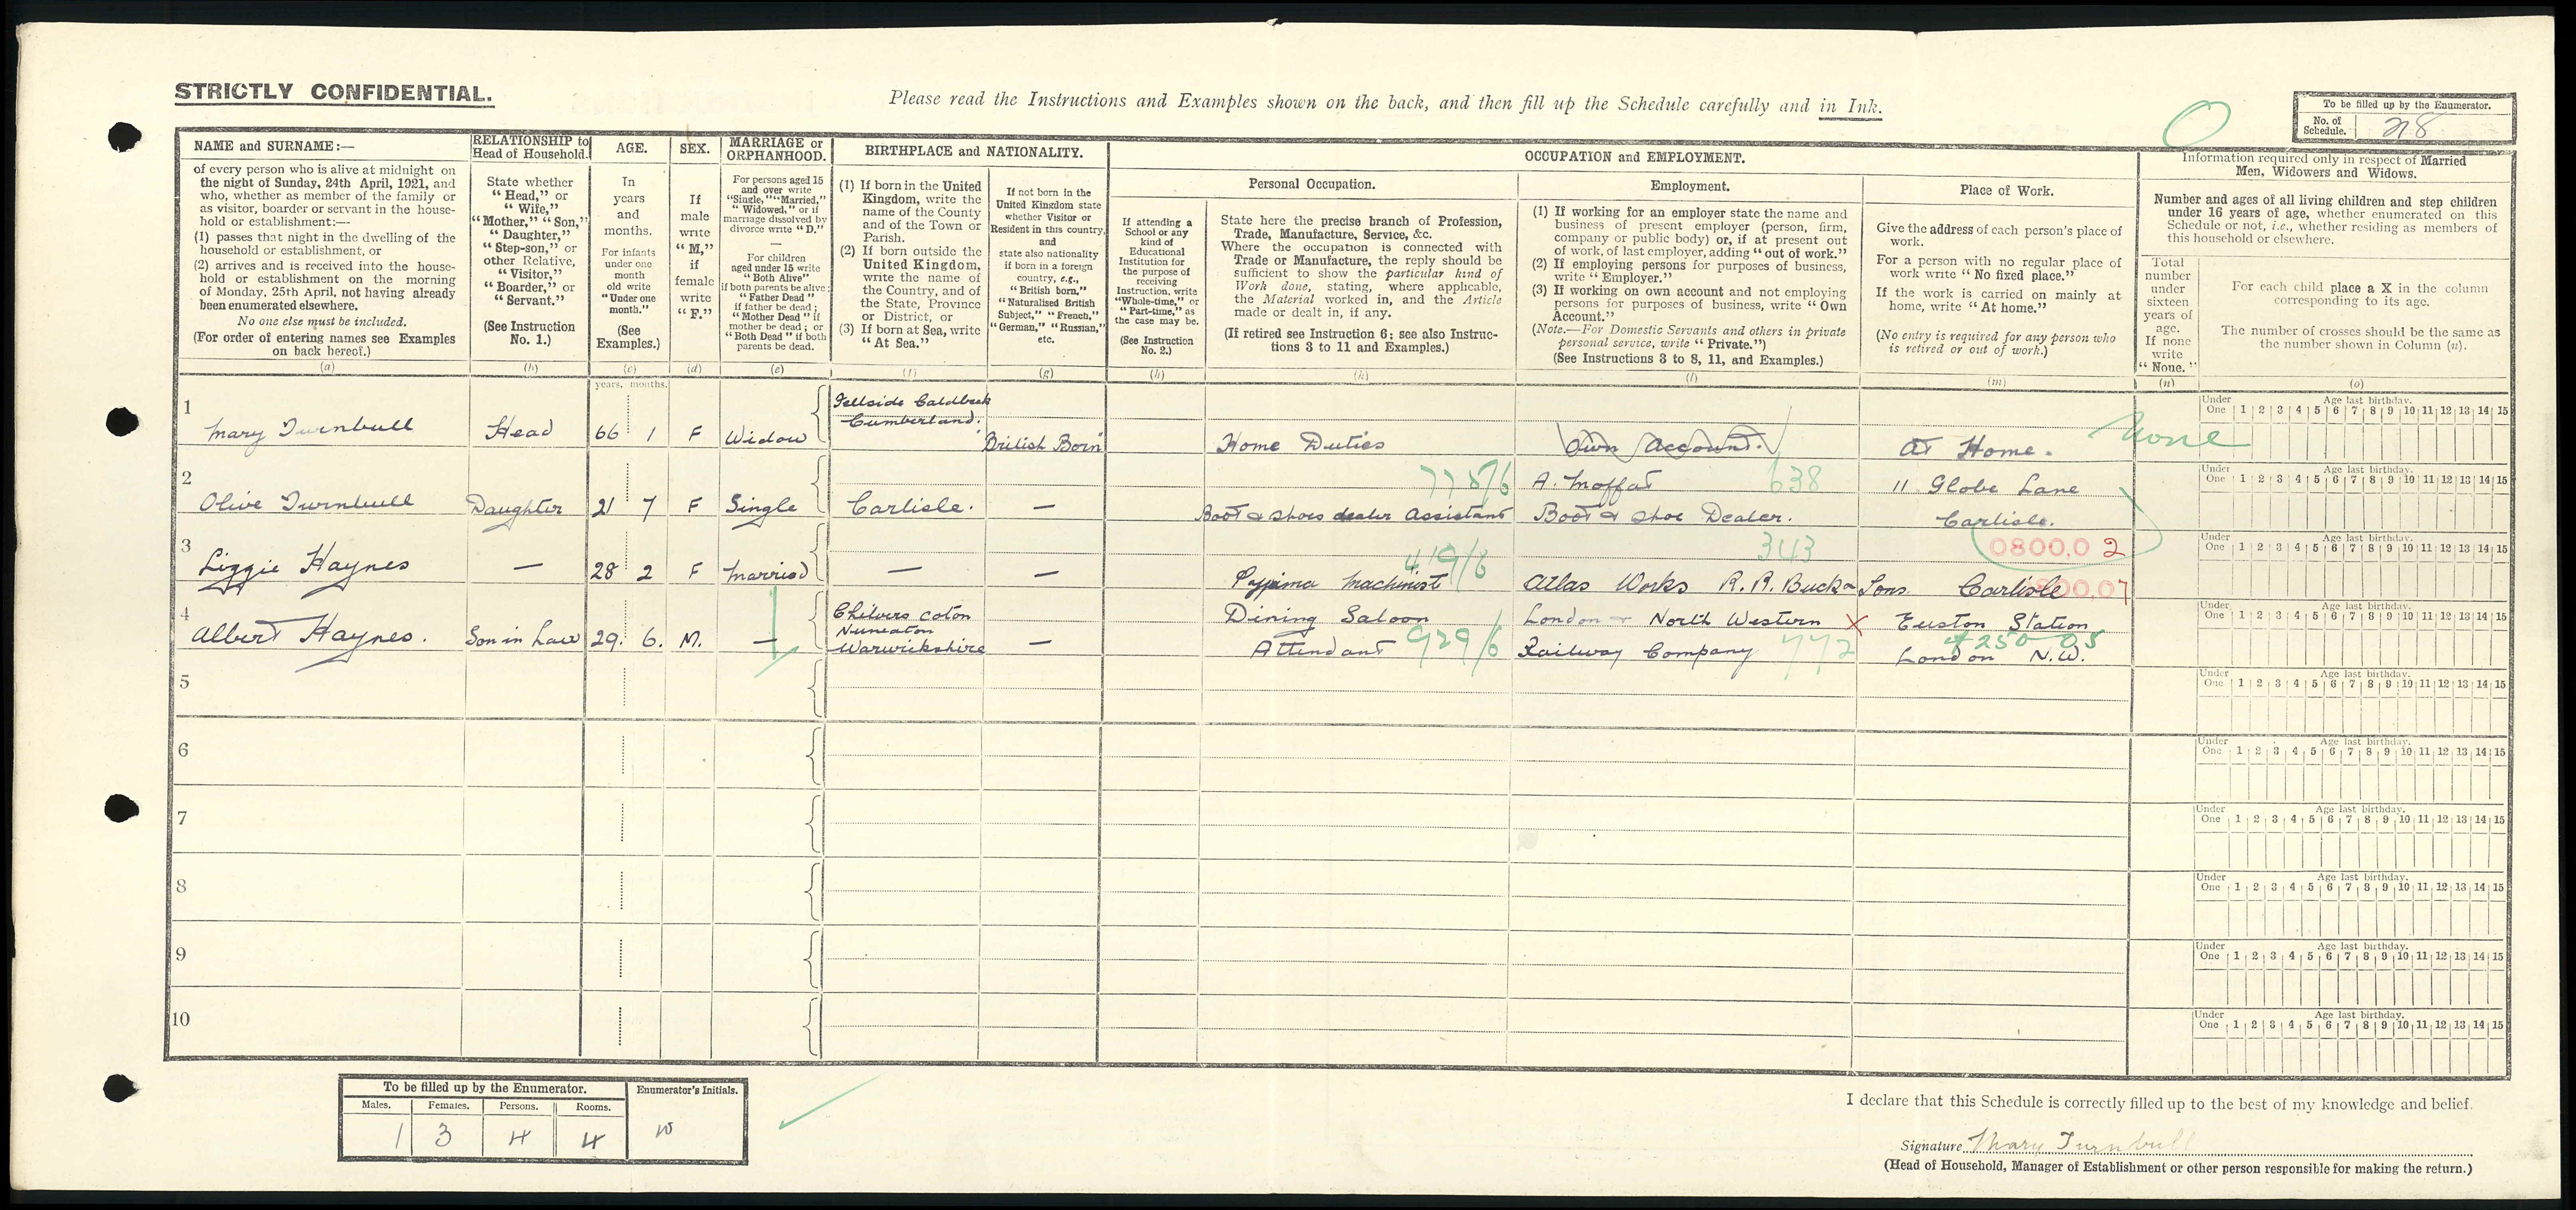 STRICTLY CONFIDENTIAL.
Please read the Instructions and Examples shown on the back, and then fill up the Schedule carefully and in Ink.
To be filled up by the Enumerator.
No. of Schedule. 28
NAME and SURNAME:—
of every person who is alive at midnight on
the night of Sunday, 24th April, 1921, and
who, whether as member of the family or
as visitor, boarder or servant in the house-
hold or establishment:—
(1) passes that night in the dwelling of the
household or establishment, or
(2) arrives and is received into the house-
hold or establishment on the morning
of Monday, 25th April, not having already
been enumerated elsewhere.
No one else must be included.
(For order of entering names see Examples
on back hereof.)
(a)
RELATIONSHIP to
Head of Household.
State whether
"Head," or
"Wife,"
"Mother," "Son,"
"Daughter,"
"Step-son," or
other Relative,
"Visitor,"
"Boarder," or
"Servant."
(See Instruction
No. 1.)
(b)
AGE.
In
years
and
months.
For infants
under one
month
old write
"Under one
month."
(See
Examples.)
(c)
years. months.
SEX.
If
male
write
"M,"
if
female
write
"F."
(d)
MARRIAGE or
ORPHANHOOD.
For persons aged 15
and over write
"Single," "Married,"
"Widowed," or if
marriage dissolved by
divorce write "D."
—
For children
aged under 15 write
"Both Alive"
if both parents be alive;
"Father Dead"
if father be dead;
"Mother Dead" if
mother be dead; or
"Both Dead" if both
parents be dead.
(e)
BIRTHPLACE and NATIONALITY.
(1) If born in the United
Kingdom, write the
name of the County
and of the Town or
Parish.
(2) If born outside the
United Kingdom,
write the name of
the Country, and of
the State, Province
or District, or
(3) If born at Sea, write
"At Sea."
(f)
If not born in the
United Kingdom state
whether Visitor or
Resident in this country,
and
state also nationality
if born in a foreign
country, e.g.,
"British born,"
"Naturalised British
Subject," "French,"
"German," "Russian,"
etc.
(g)
OCCUPATION and EMPLOYMENT.
If attending a
School or any
kind of
Educational
Institution for
the purpose of
receiving
Instruction, write
"Whole-time," or
"Part-time," as
the case may be.
(See Instruction
No. 2.)
(h)
Personal Occupation.
State here the precise branch of Profession,
Trade, Manufacture, Service, &c.
Where the occupation is connected with
Trade or Manufacture, the reply should be
sufficient to show the particular kind of
Work done, stating, where applicable,
the Material worked in, and the Article
made or dealt in, if any.
(If retired see Instruction 6; see also Instruc-
tions 3 to 11 and Examples.)
(k)
Employment.
(1) If working for an employer state the name and
business of present employer (person, firm,
company or public body) or, if at present out
of work, of last employer, adding "out of work."
(2) If employing persons for purposes of business,
write "Employer."
(3) If working on own account and not employing
persons for purposes of business, write "Own
Account."
(Note.—For Domestic Servants and others in private
personal service, write "Private.")
(See Instructions 3 to 8, 11, and Examples.)
(l)
Place of Work.
Give the address of each person's place of
work.
For a person with no regular place of
work write "No fixed place."
If the work is carried on mainly at
home, write "At home."
(No entry is required for any person who
is retired or out of work.)
(m)
Information required only in respect of Married
Men, Widowers and Widows.
Number and ages of all living children and step children
under 16 years of age, whether enumerated on this
Schedule or not, i.e., whether residing as members of
this household or elsewhere.
Total
number
under
sixteen
years of
age.
If none
write
"None."
(n)
For each child place a X in the column
corresponding to its age.
The number of crosses should be the same as
the number shown in Column (n).
(o)
1
Mary Turnbull Head 66 1 F Widow
Fellside Caldbeck
Cumberland.
British Born
Home Duties
Own Account.
At Home.
None
Under Age last birthday.
One 1 2 3 4 5 6 7 8 9 10 11 12 13 14 15
2
Olive Turnbull Daughter 21 7 F Single Carlisle. —
778/6
Boot & Shoes dealer Assistant
A. Moffat 638
Boot & Shoe Dealer.
11 Globe Lane
Carlisle.
0800,0 2
Under Age last birthday.
One 1 2 3 4 5 6 7 8 9 10 11 12 13 14 15
3
Lizzie Haynes — 28 2 F Married — —
419/6
Pyjima Machinist
343
Atlas Works R. R. Buck & Sons. Carlisle
Under Age last birthday.
One 1 2 3 4 5 6 7 8 9 10 11 12 13 14 15
4
Albert Haynes. Son in Law 29. 6. M. —
Chilvers Coton
Nuneaton
Warwickshire
—
Dining Saloon
Attendant 929/6
London & North Western X
Railway Company 772
Euston Station
London N.W.
Under Age last birthday.
One 1 2 3 4 5 6 7 8 9 10 11 12 13 14 15
5
Under Age last birthday.
One 1 2 3 4 5 6 7 8 9 10 11 12 13 14 15
6
Under Age last birthday.
One 1 2 3 4 5 6 7 8 9 10 11 12 13 14 15
7
Under Age last birthday.
One 1 2 3 4 5 6 7 8 9 10 11 12 13 14 15
8
Under Age last birthday.
One 1 2 3 4 5 6 7 8 9 10 11 12 13 14 15
9
Under Age last birthday.
One 1 2 3 4 5 6 7 8 9 10 11 12 13 14 15
10
Under Age last birthday.
One 1 2 3 4 5 6 7 8 9 10 11 12 13 14 15
To be filled up by the Enumerator.
Males. Females. Persons. Rooms.
1 3 4 4
Enumerator's Initials.
I declare that this Schedule is correctly filled up to the best of my knowledge and belief.
Signature Mary Turnbull
(Head of Household, Manager of Establishment or other person responsible for making the return.)